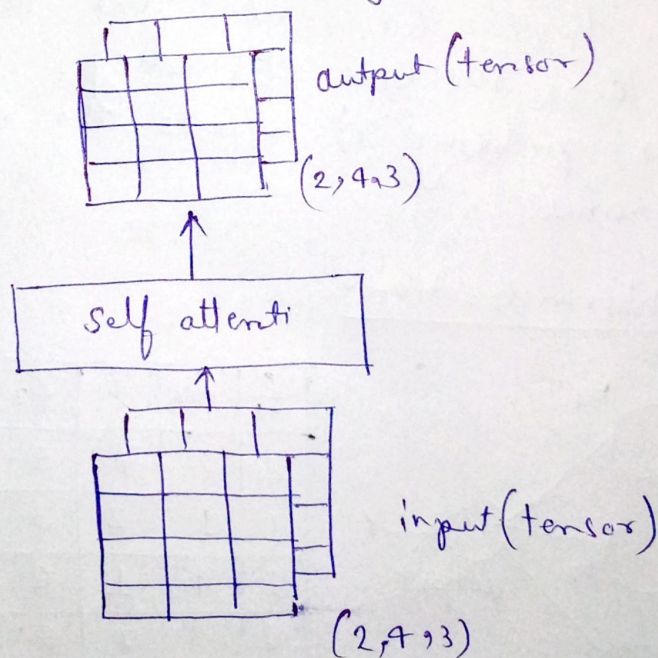 output (tensor)
(2,4,3)
self attenti
input (tensor)
(2,4,3)